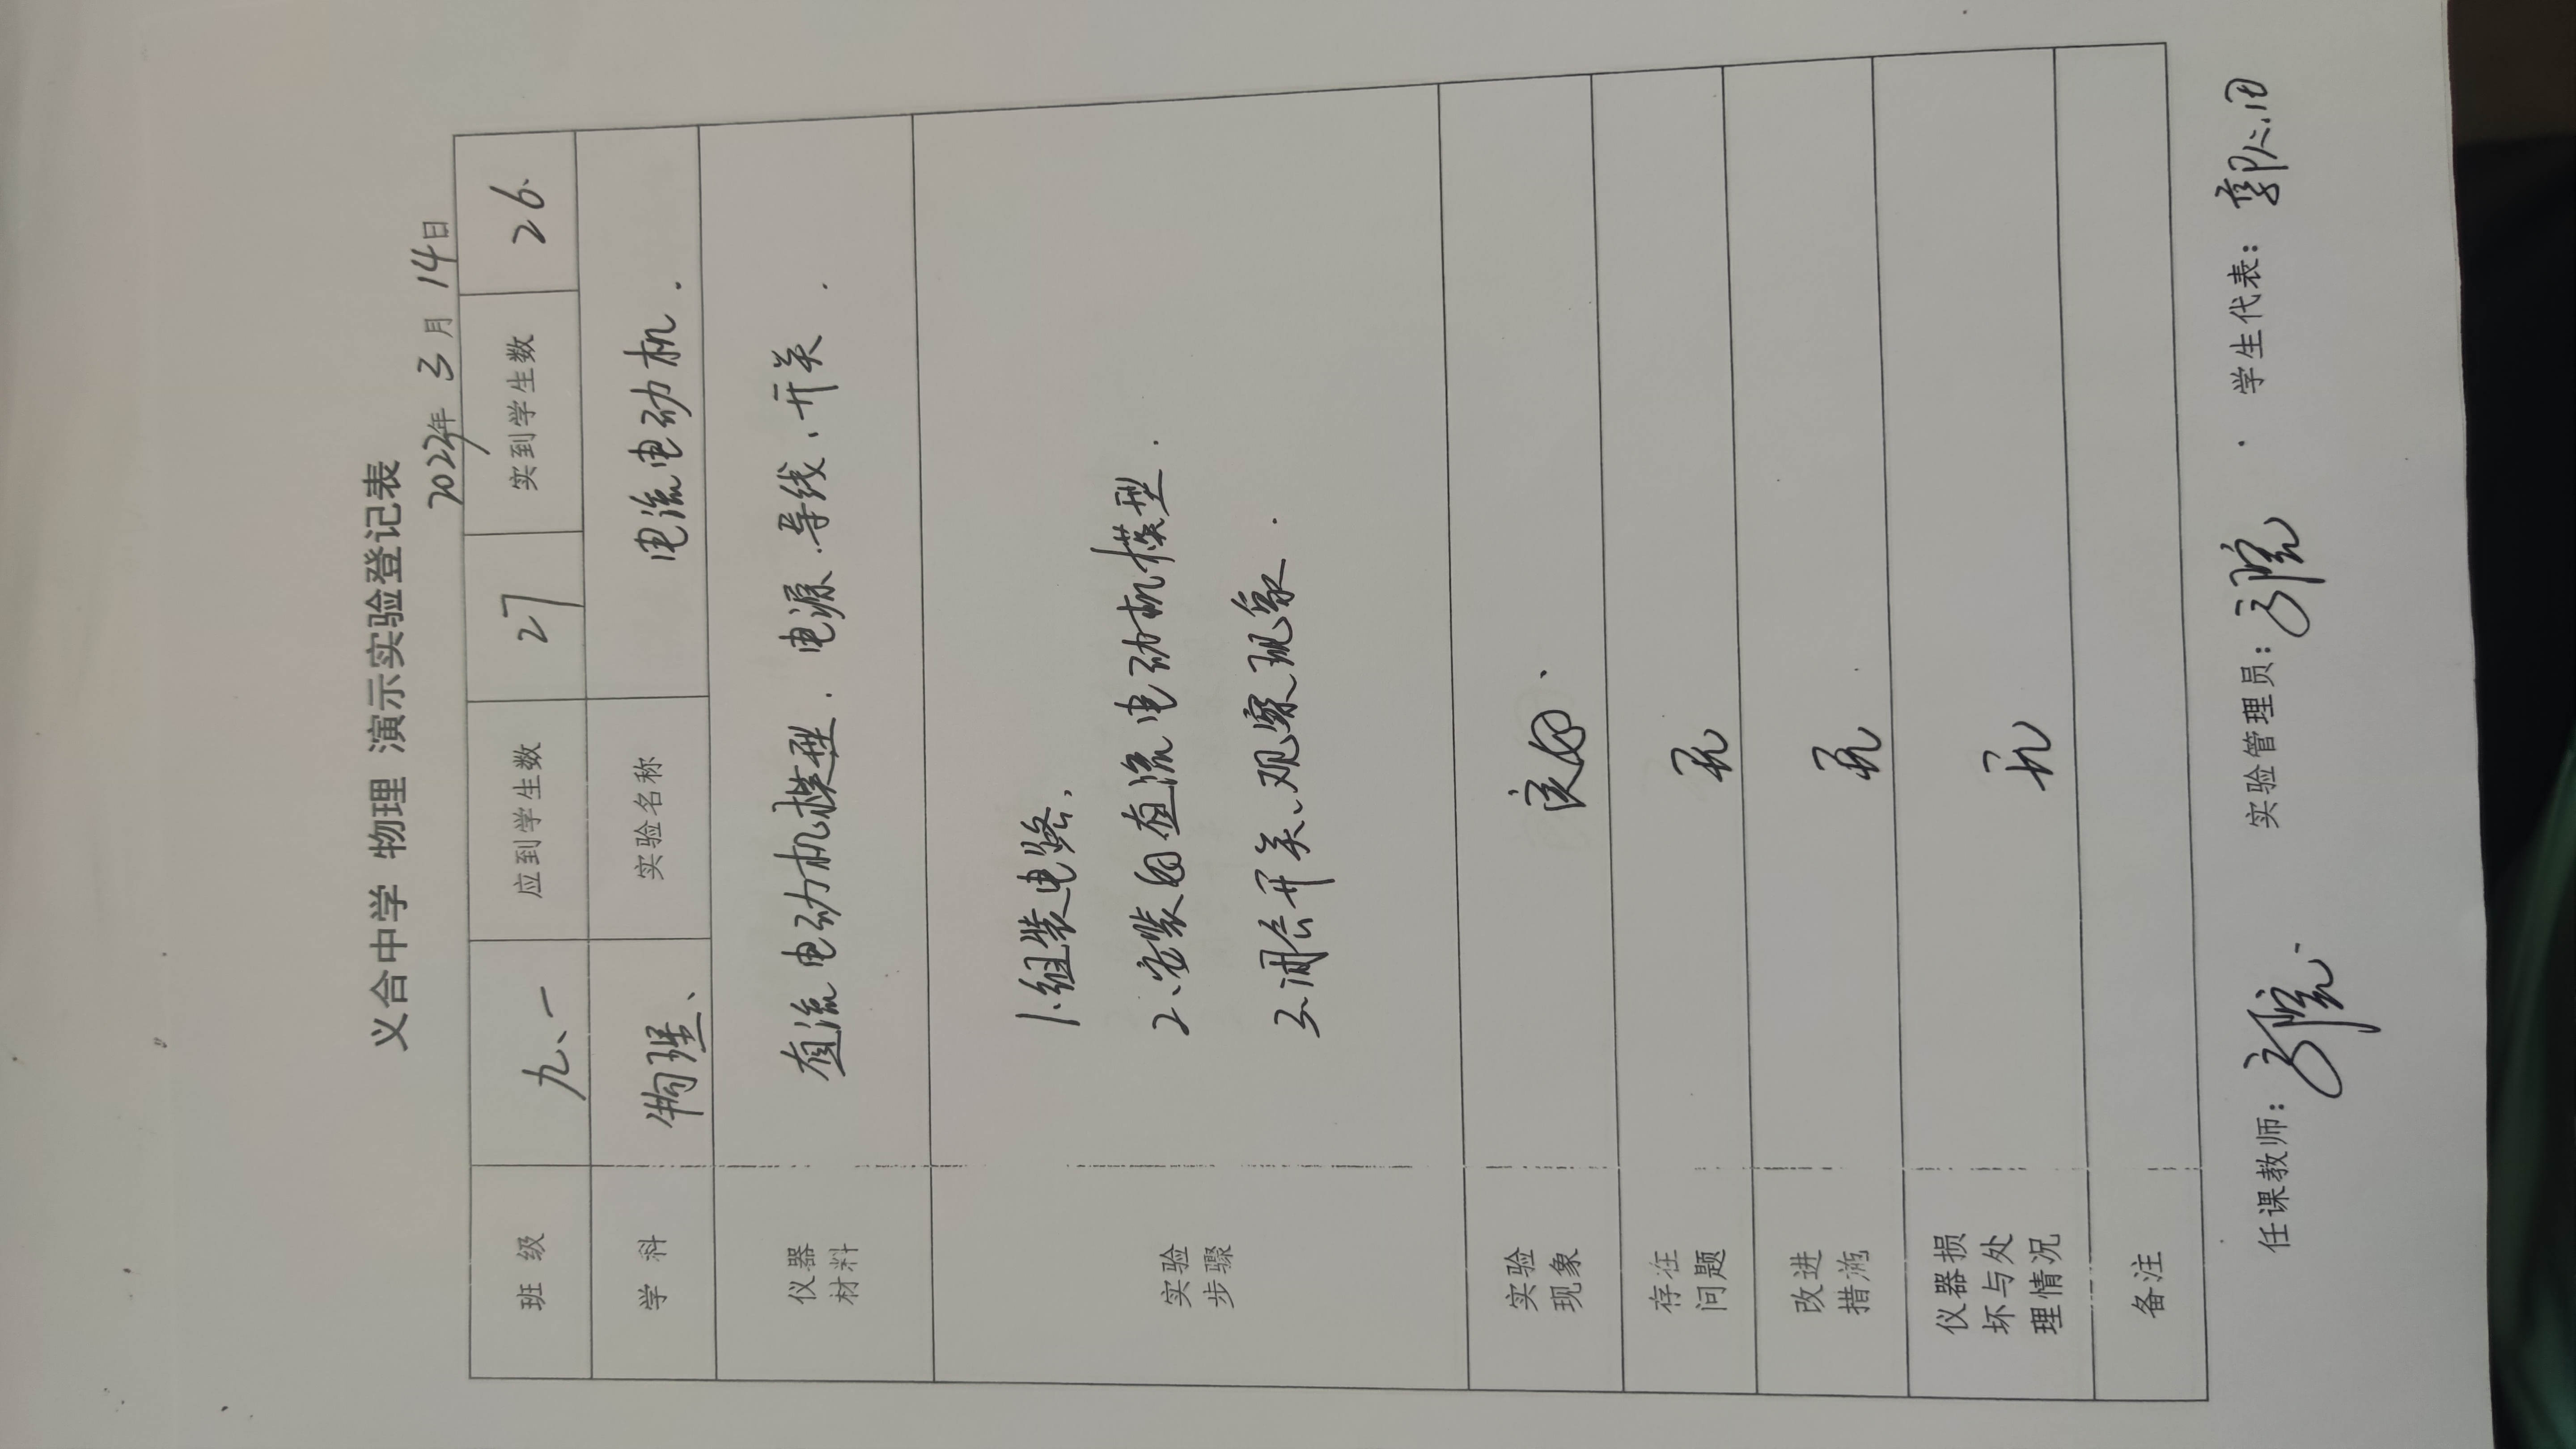 义合中学 物理 演示实验登记表
2022年 3 月 14日
班 级 九、一 应到学生数 27 实到学生数 26.
学 科 物理、 实验名称 电流电动机.
仪器材料 直流电动机模型. 电源.导线、开关.
实验步骤
1.组装电路,
2、安装好直流电动机模型.
3、闭合开关、观察现象.
实验现象 良好、
存在问题 无
改进措施 无
仪器损坏与处理情况 无
备注
任课教师: 实验管理员: 学生代表: